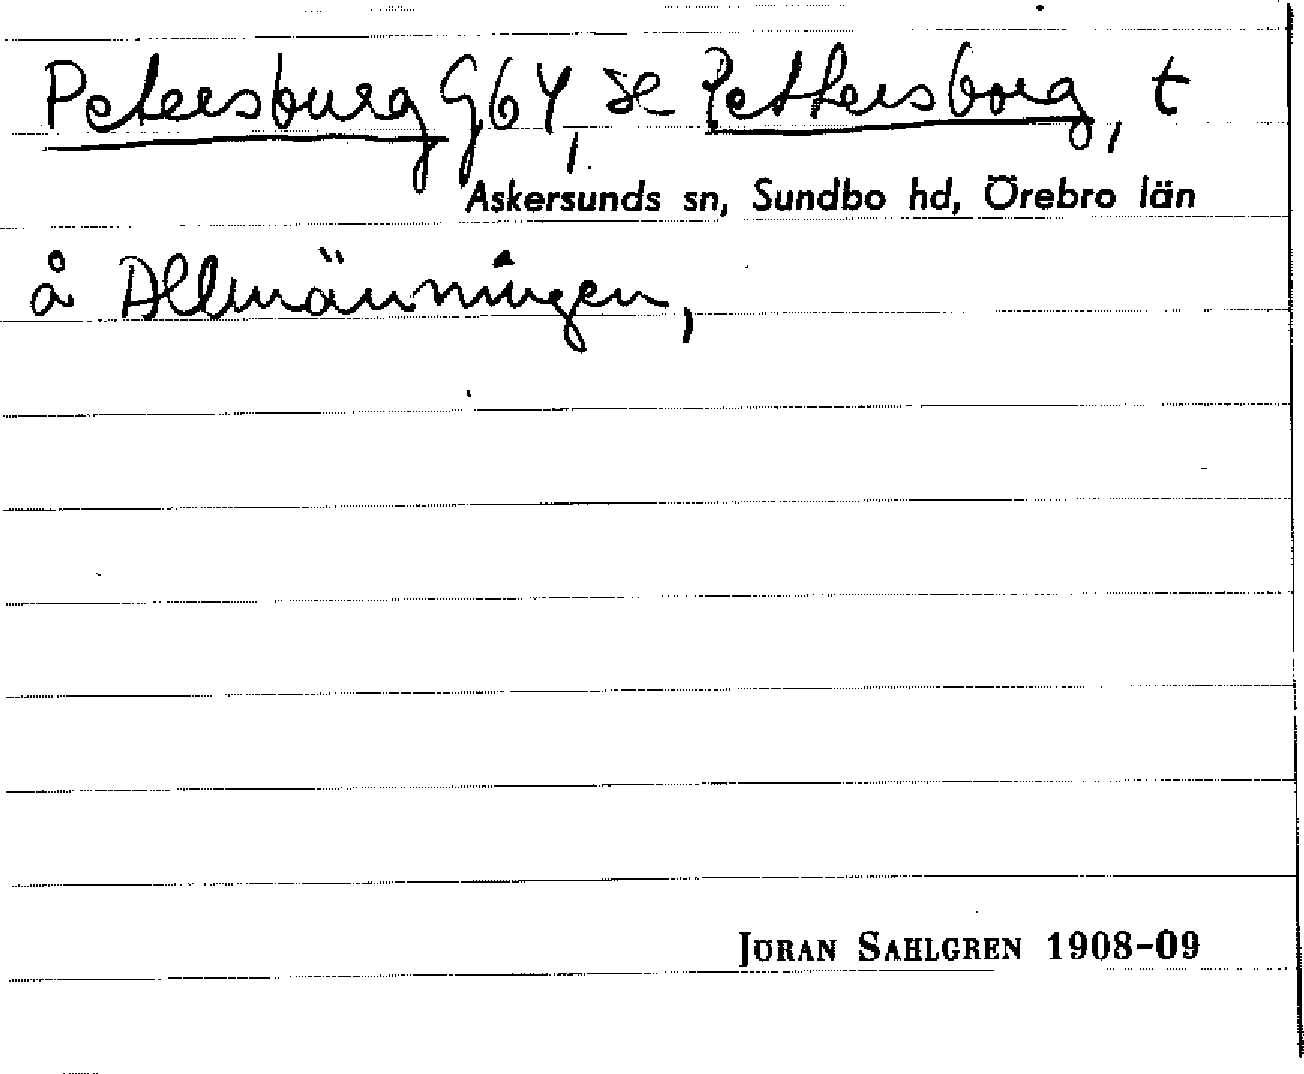 Petersburg G6Y, se Pettersborg, t
Askersunds sn, Sundbo hd, Örebro län
å Allmänningen,
JÖRAN SAHLGREN 1908-09